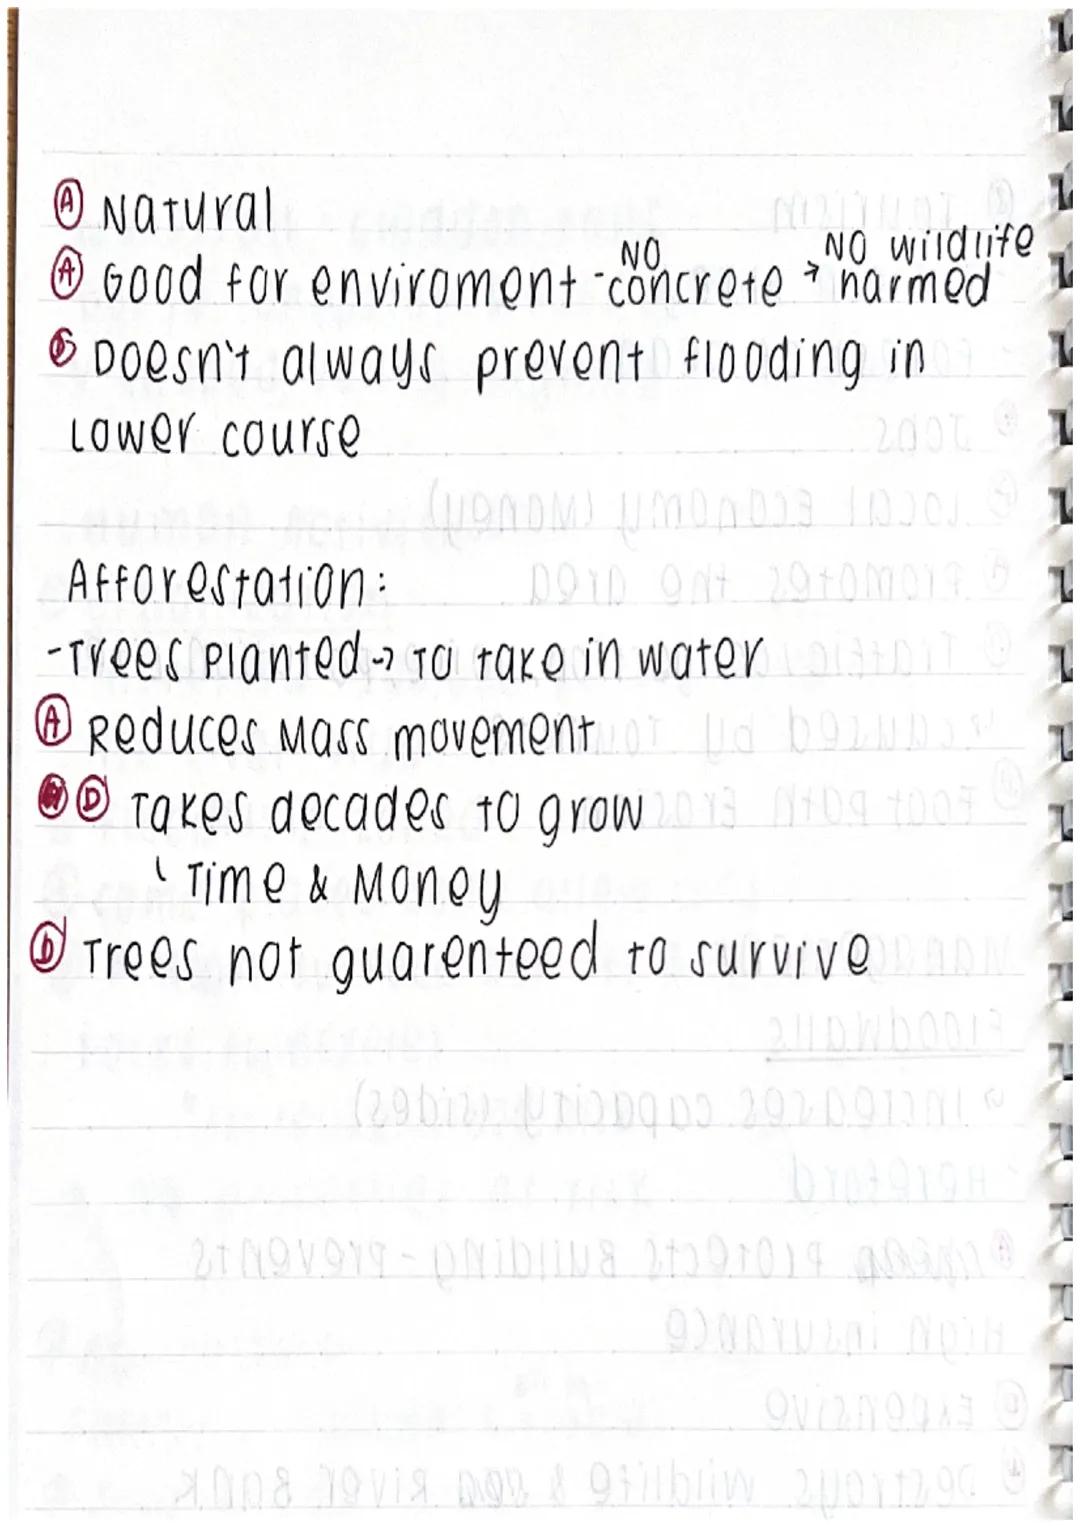 Ⓐ Natural
Ⓐ Good for enviroment - NO concrete → NO wildlife harmed
Ⓓ Doesn't always prevent flooding in
Lower course
Afforestation:
-Trees Planted → To take in water
Ⓐ Reduces Mass movement
Ⓓ Takes decades to grow
Time & Money
Ⓓ Trees not guarenteed to survive